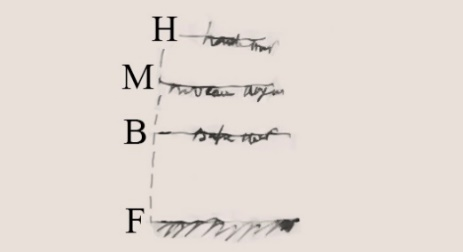 H haute mer
M niveau moyen
B Basse mer
F